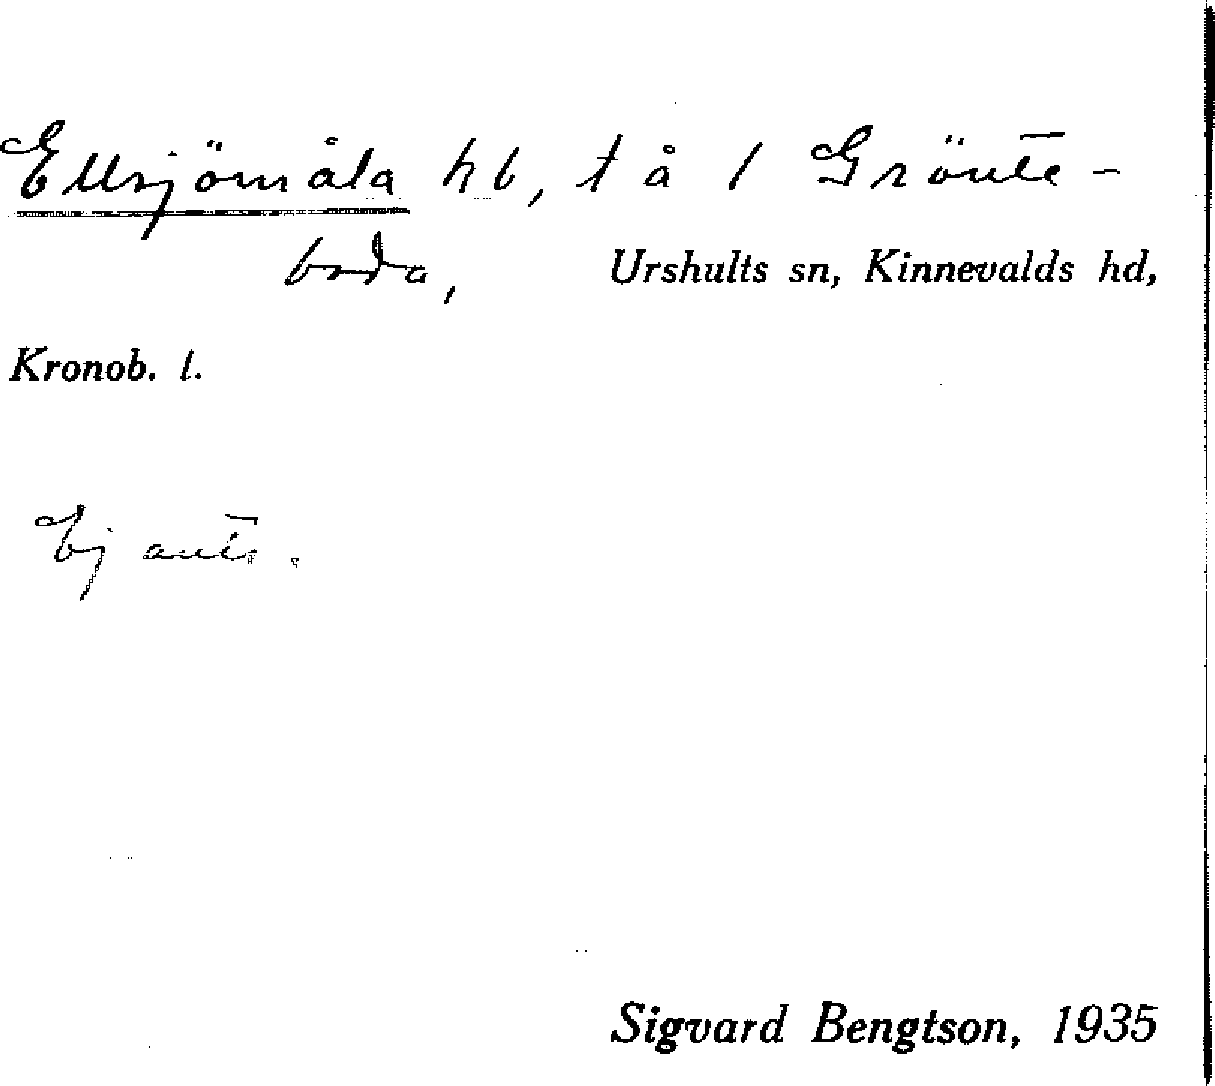 Ellsjömåla hb, t å 1 Grönte-
boda, Urshults sn, Kinnevalds hd,
Kronob. l.
Ej ant.
Sigvard Bengtson, 1935